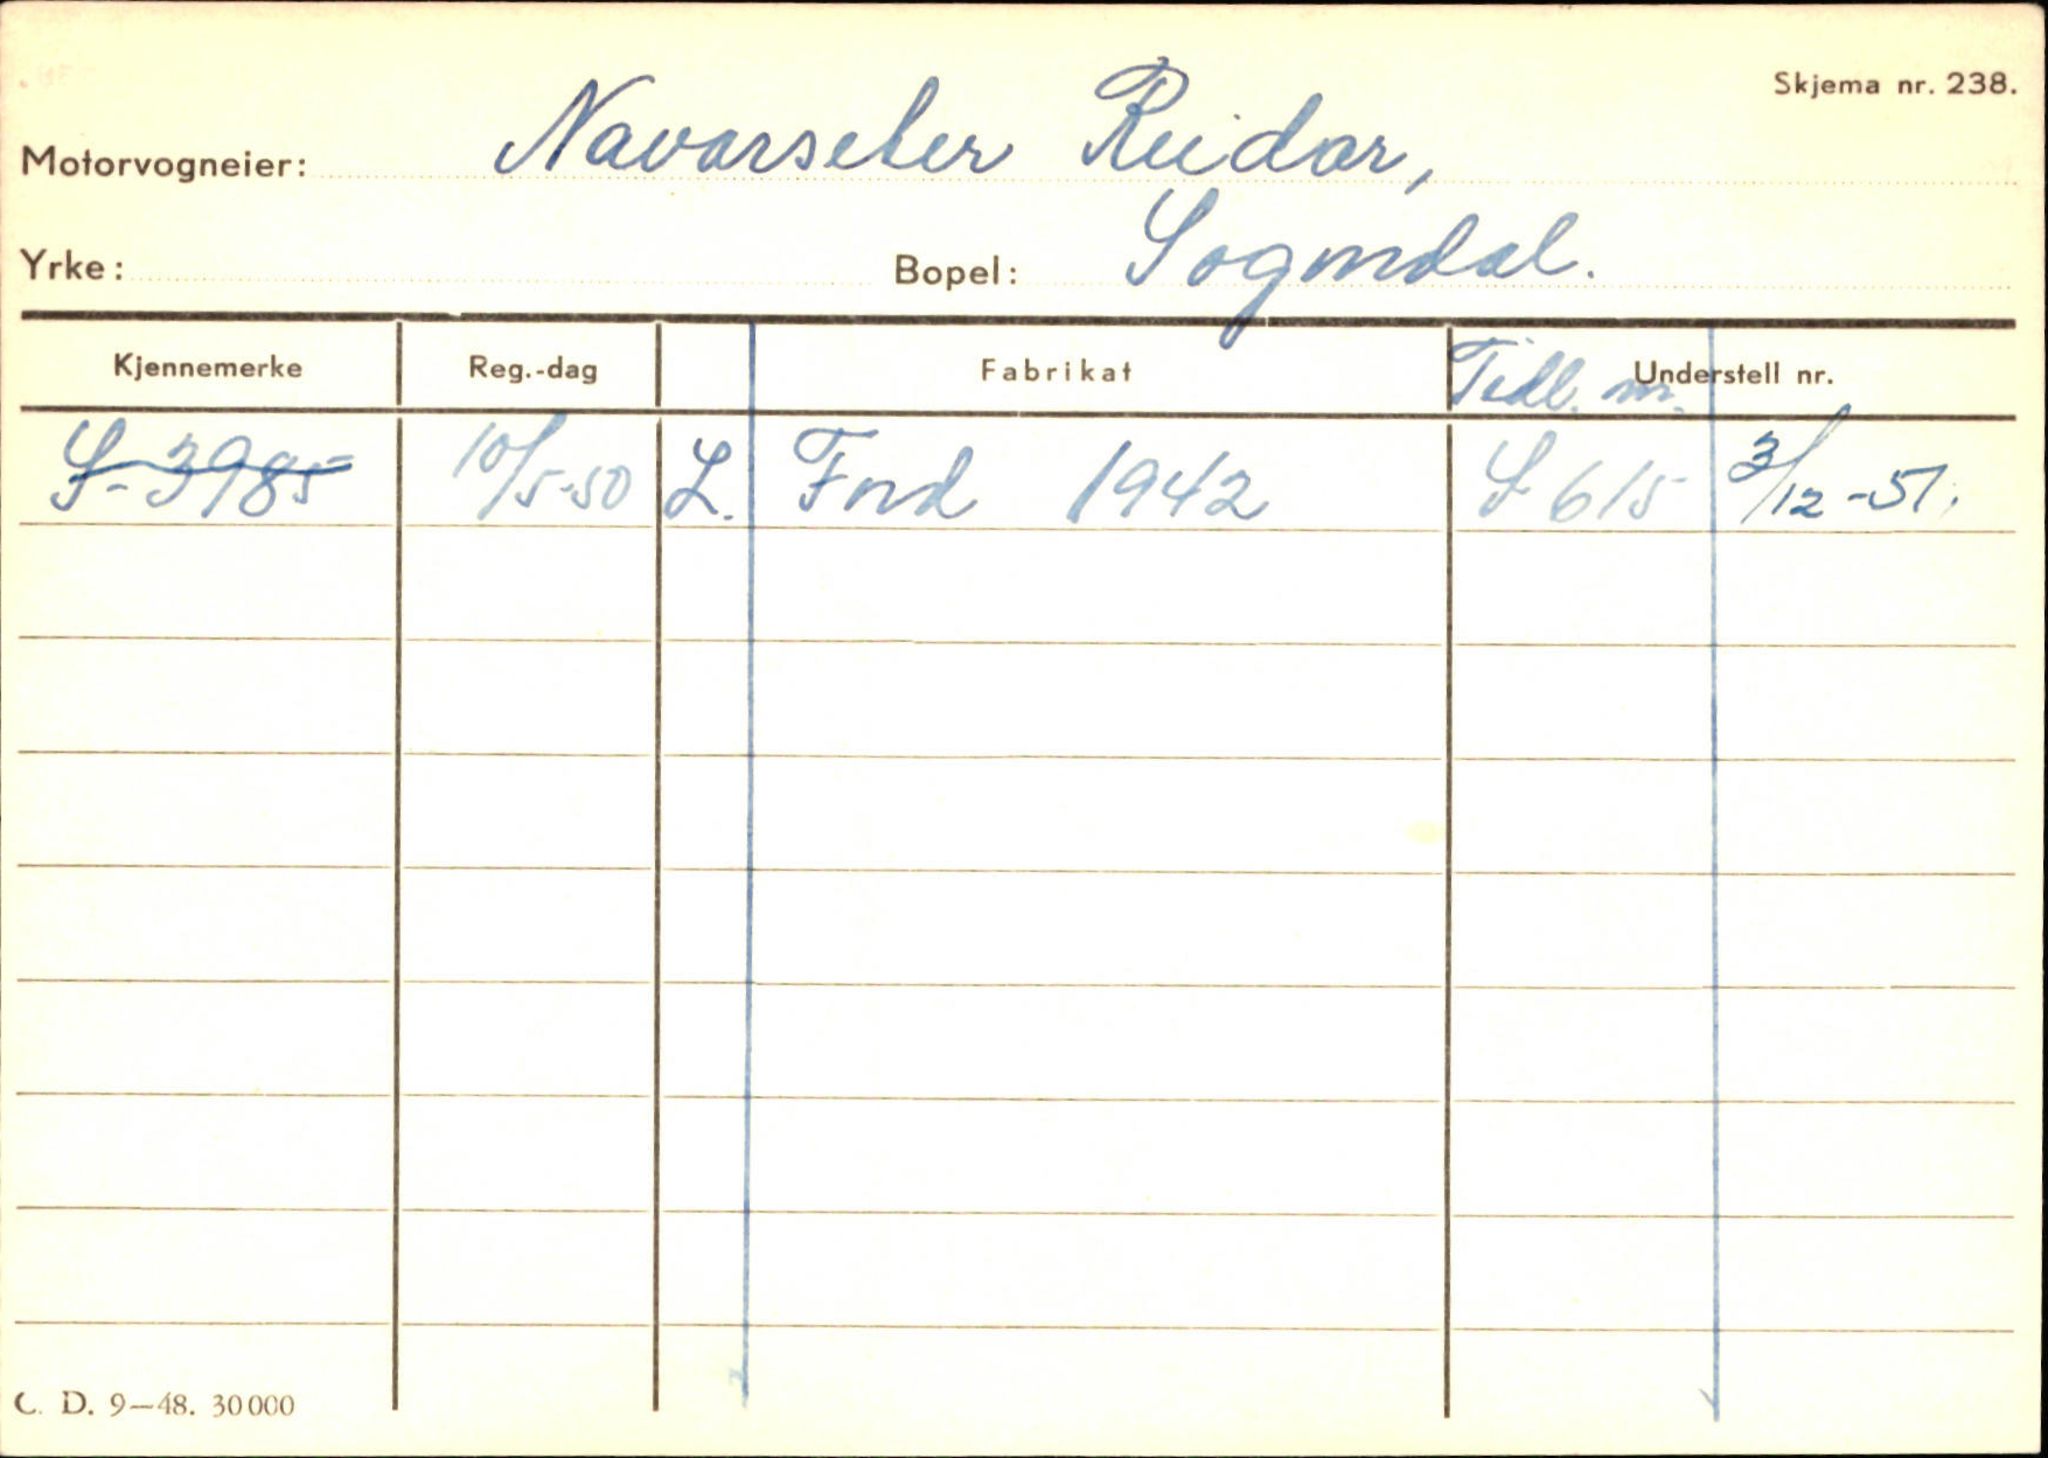 Skjema nr. 238.
Motorvogneier: Navarseter Reidar,
Yrke: Bopel: Sogndal.
Kjennemerke Reg.-dag Fabrikat Tidl. nr. Understell nr.
S-3985 10/5-50 L. Ford 1942 S 615 3/12-51.
C. D. 9—48. 30000